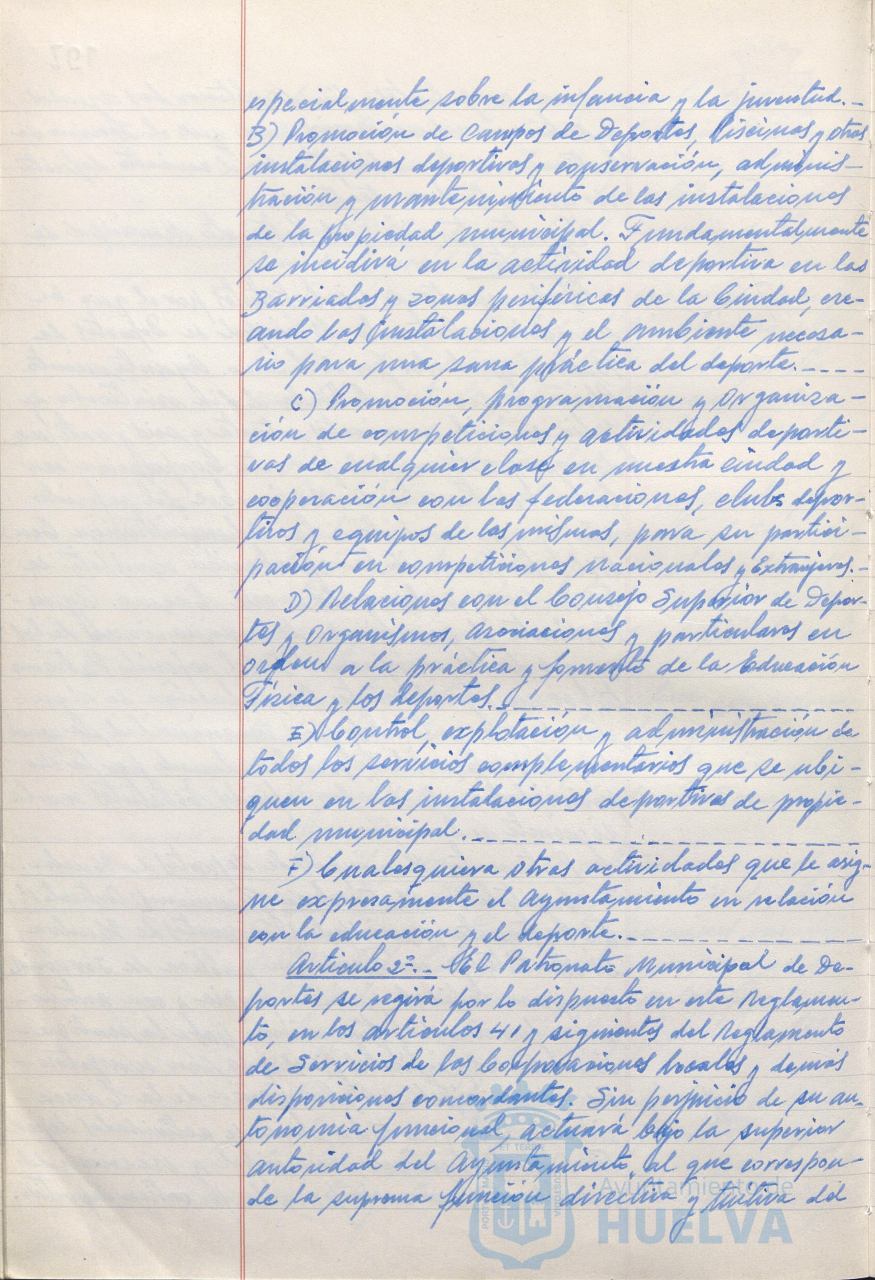 especialmente sobre la infancia y la juventud.-
B) Promoción de Campos de Deportes, Piscinas y otras
instalaciones deportivas y conservación, adminis-
tración y mantenimiento de las instalaciones
de la propiedad municipal. Fundamentalmente
se incidirá en la actividad deportiva en las
Barriadas y zonas periféricas de la Ciudad, cre-
ando las instalaciones y el ambiente necesa-
rio para una sana práctica del deporte.----
C) Promoción, programación y Organiza-
ción de competiciones y actividades deporti-
vas de cualquier clase en nuestra ciudad y
cooperación con las federaciones, clubs depor-
tivos y equipos de las mismas, para su partici-
pación en competiciones nacionales y Extranjeras.-
D) Relaciones con el Consejo Superior de Depor-
tes y Organismos, Asociaciones y particulares en
orden a la práctica y fomento de la Educación
Física y los deportes.
E) Control, explotación y administración de
todos los servicios complementarios que se ubi-
quen en las instalaciones deportivas de propie-
dad municipal.
F) Cualesquiera otras actividades que le asig-
ne expresamente el Ayuntamiento en relación
con la educación y el deporte.
Artículo 2º.- El Patronato Municipal de De-
portes se regirá por lo dispuesto en este Reglamen-
to, en los artículos 41 y siguientes del Reglamento
de Servicios de las Corporaciones Locales y demás
disposiciones concordantes. Sin perjuicio de su au-
tonomía funcional, actuará bajo la superior
autoridad del Ayuntamiento, al que correspon-
de la suprema función directiva y tuitiva del
Ayuntamiento de
HUELVA